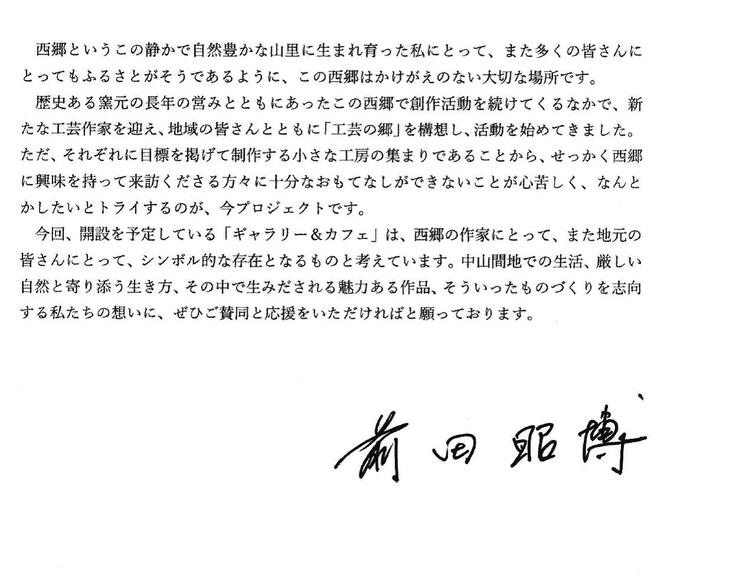 西郷というこの静かで自然豊かな山里に生まれ育った私にとって、また多くの皆さんに
とってもふるさとがそうであるように、この西郷はかけがえのない大切な場所です。
歴史ある窯元の長年の営みとともにあったこの西郷で創作活動を続けてくるなかで、新
たな工芸作家を迎え、地域の皆さんとともに「工芸の郷」を構想し、活動を始めてきました。
ただ、それぞれに目標を掲げて制作する小さな工房の集まりであることから、せっかく西郷
に興味を持って来訪くださる方々に十分なおもてなしができないことが心苦しく、なんと
かしたいとトライするのが、今プロジェクトです。
今回、開設を予定している「ギャラリー＆カフェ」は、西郷の作家にとって、また地元の
皆さんにとって、シンボル的な存在となるものと考えています。中山間地での生活、厳しい
自然と寄り添う生き方、その中で生みだされる魅力ある作品、そういったものづくりを志向
する私たちの想いに、ぜひご賛同と応援をいただければと願っております。
前田昭博